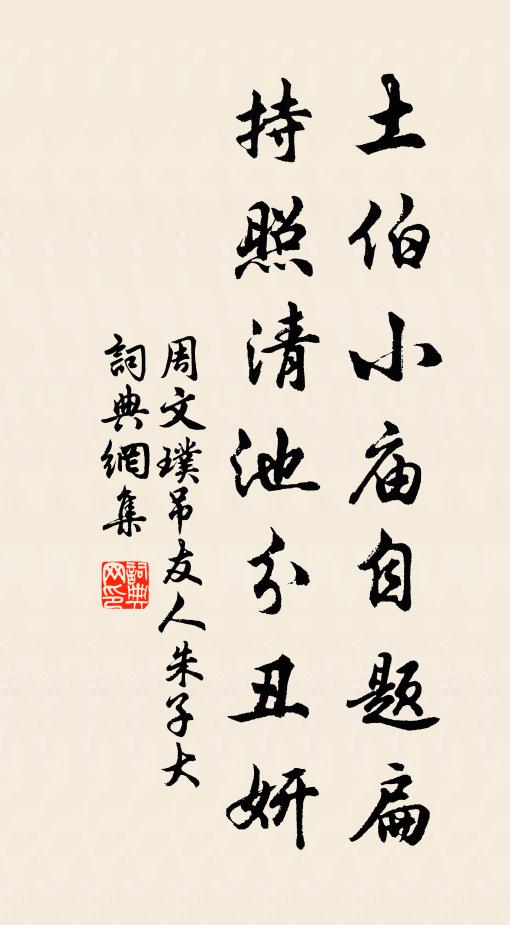 土伯小庙自题扁
持照清池分丑妍
周文璞吊友人朱子大
詞典網集
詞典网印